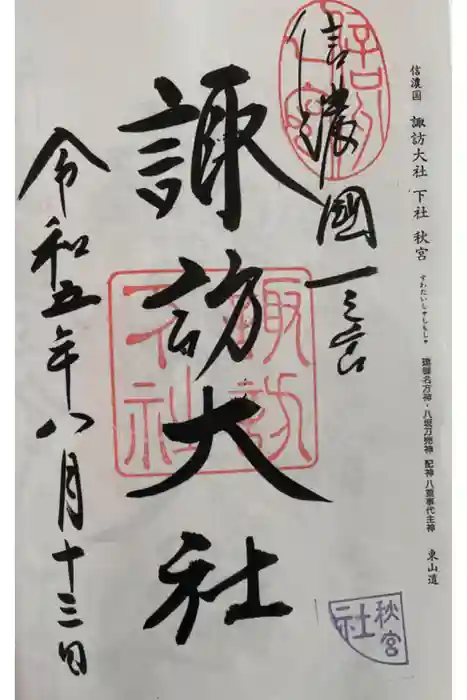 信濃国 諏訪大社 下社 秋宮 すわたいしゃしもしゃ 建御名方神・八坂刀売神 配神 八重事代主神 東山道
信濃國一之宮
諏訪大社
令和五年八月十三日
諏訪
大社
秋宮
社